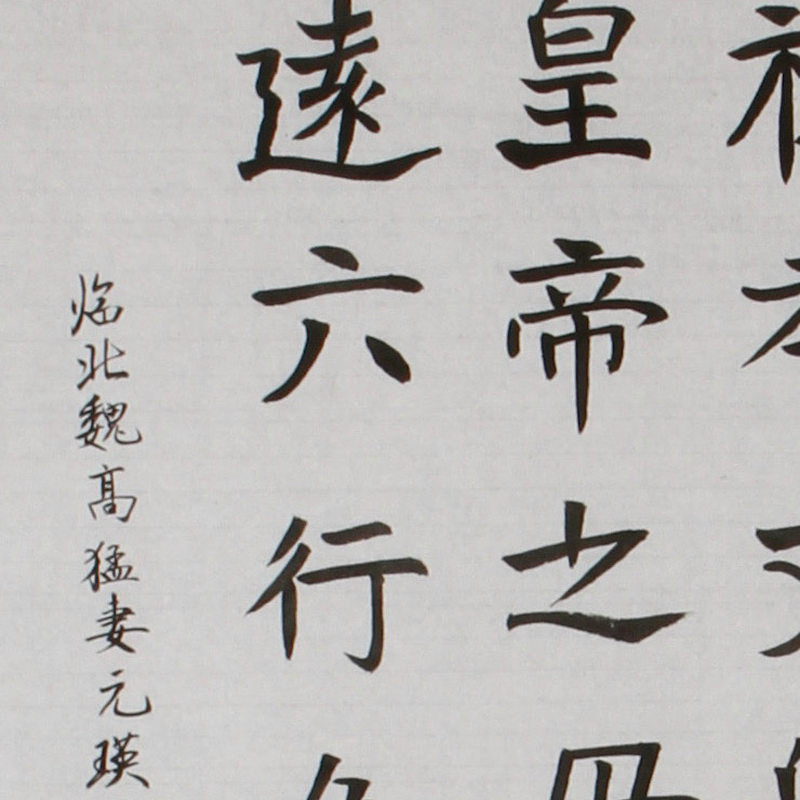 皇帝之
遠六行
临北魏高猛妻元瑛